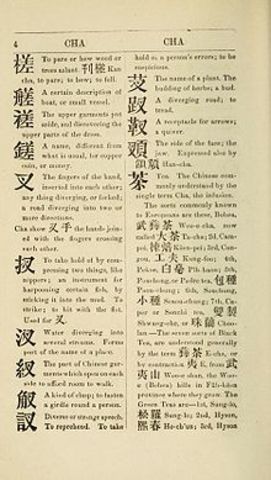 4 CHA CHA
槎 To pare or hew wood or
trees aslant. 刋槎 Kan
cha, to pare; to hew; to fell.
艖 A certain description of
boat, or small vessel.
The upper garments put
aside, and discovering the
upper parts of the dress.
A name, different from
what is usual, for copper
coin, or money.
叉 The fingers of the hand,
inserted into each other;
any thing diverging, or forked;
a road diverging into two or
more directions.
Cha show 叉手 the hands join-
ed with the fingers crossing
each other.
扠 To take hold of by com-
pressing two things, like
nippers; an instrument for
harpooning certain fish, by
sticking it into the mud. To
strike; to hit with the fist.
Used for 叉.
汊 Water diverging into
several streams. Forms
part of the name of a place.
衩 The part of Chinese gar-
ments which open on each
side to afford room to walk.
A kind of clasp; to fasten
a girdle round a person.
訍 Diverse or strange speech.
To reprehend. To take
hold of a person's errors; to be
suspicious.
芆 The name of a plant. The
budding of herbs; a bud.
A diverging road; to
tread.
靫 A receptacle for arrows;
a quiver.
The side of the face; the
jaw. Expressed also by
Han-cha.
茶 Tea. The Chinese com-
monly understand by the
single term Cha, the infusion.
The sorts commonly known
to Europeans are these, Bohea,
武彞茶 Woo-e-cha, now
called 大茶 Ta-cha; 2d, Cam-
poi, Kien-pei; 3rd, Con-
gou, 工夫 Kung-foo; 4th,
Pekoe, 白毫 Pih-haou; 5th,
Pouchong, or Padre tea, 包種
Paou-chung; 6th, Souchong,
小種 Seaou-chung; 7th, Ca-
per or Sonchi tea, 雙製
Shwang-che, or 珠蘭 Choo-
lan.—The seven sorts of Black
Tea, are understood generally
by the term 彞茶 E-cha, or
by contraction 夷 E, from 武
夷山 Woo-e shan, the Woo-
e (Bohea) hills in Füh-këen
province where they grow. The
Green Teas are—1st, Sung-lo,
松羅 Sung-lo; 2nd, Hyson,
熙春 He-ch'un; 3rd, Hyson,